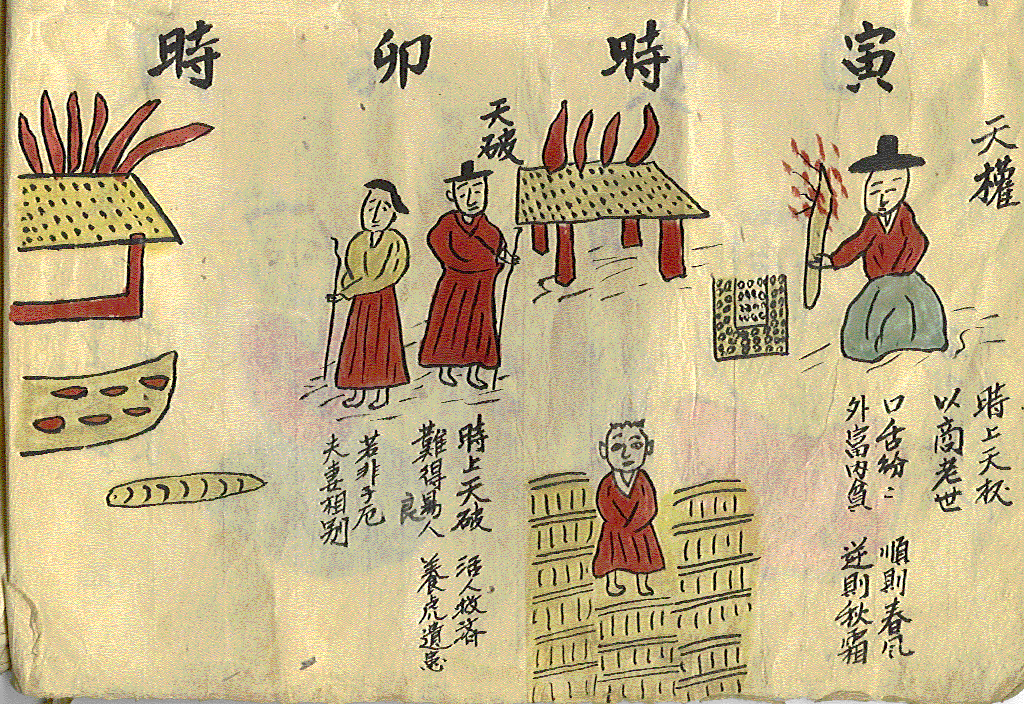 寅時
天權
時上天权
以商老世
口舌紛〻
外富內貧
順則春風
逆則秋霜
卯時
天破
時上天破
難得易人
良
若非子厄
夫妻相別
活人救濟
養虎遺患